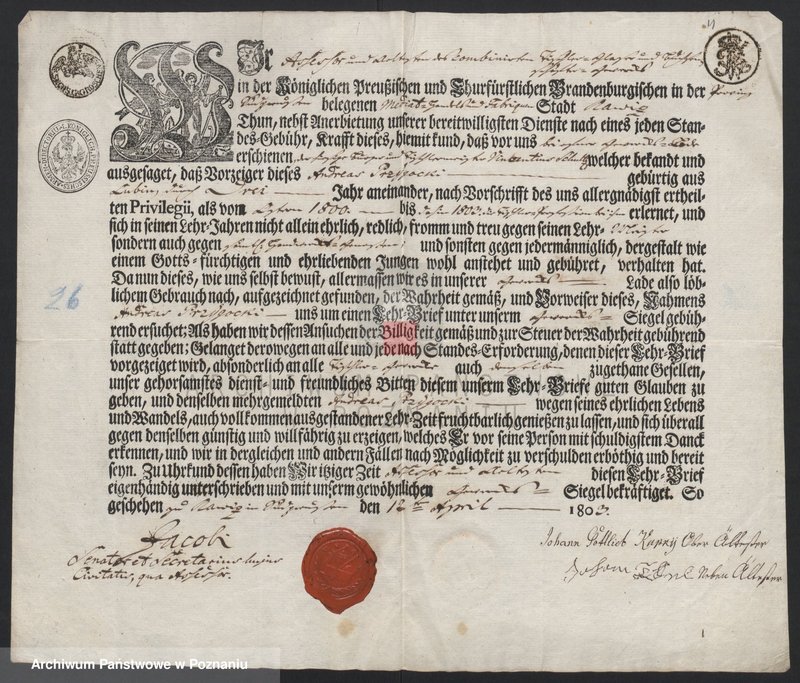 Wir Assessor und Aeltesten des combinirten Tischler-
in der Königlichen Preußischen und Churfürstlichen Brandenburgischen in der Provinz
belegenen Stadt
Thun, nebst Anerbietung unserer bereitwilligsten Dienste nach eines jeden Stan-
des-Gebühr, Krafft dieses, hiemit kund, daß vor uns
erschienen welcher bekandt und
ausgesaget, daß Vorzeiger dieses Andreas Przysocki gebürtig aus
Lubin, durch Drei Jahr aneinander, nach Vorschrifft des uns allergnädigst ertheil-
ten Privilegii, als vom 1800. bis erlernet, und
sich in seinen Lehr-Jahren nicht allein ehrlich, redlich, fromm und treu gegen seinen Lehr-
sondern auch gegen und sonsten gegen jedermänniglich, dergestalt wie
einem Gotts-fürchtigen und ehrliebenden Jungen wohl anstehet und gebühret, verhalten hat.
Da nun dieses, wie uns selbst bewust, allermassen wir es in unserer Gewerks- Lade also löb-
lichem Gebrauch nach, aufgezeichnet gefunden, der Wahrheit gemäß, und Vorweiser dieses, Nahmens
Andreas Przysocki uns um einen Lehr-Brief unter unserm Gewerks- Siegel gebüh-
rend ersuchet; Als haben wir dessen Ansuchen der Billigkeit gemäß und zur Steuer der Wahrheit gebührend
statt gegeben; Gelanget derowegen an alle und jede nach Standes-Erforderung, denen dieser Lehr-Brief
vorgezeiget wird, absonderlich an alle Tischler-Gewerke auch denselben zugethane Gesellen,
unser gehorsamstes dienst- und freundliches Bitten diesem unserm Lehr-Briefe guten Glauben zu
geben, und denselben mehrgemeldten Andreas Przysocki wegen seines ehrlichen Lebens
und Wandels, auch vollkommen ausgestandener Lehr-Zeit fruchtbarlich genießen zu lassen, und sich überall
gegen denselben günstig und willfährig zu erzeigen, welches Er vor seine Person mit schuldigstem Danck
erkennen, und wir in dergleichen und andern Fällen nach Möglichkeit zu verschulden erböthig und bereit
seyn. Zu Uhrkund dessen haben Wir itziger Zeit Assessor und Aeltesten diesen Lehr-Brief
eigenhändig unterschrieben und mit unserm gewöhnlichen Gewerks- Siegel bekräftiget. So
geschehen zu Rawicz in Südpreußen den 16ten April 1803.
Jacobi
Senator et Secretarius hujus
Civitatis, qua Assessor.
Johann Gottlieb Ober Ältester
Johann Neben Ältester
26
1
Archiwum Państwowe w Poznaniu